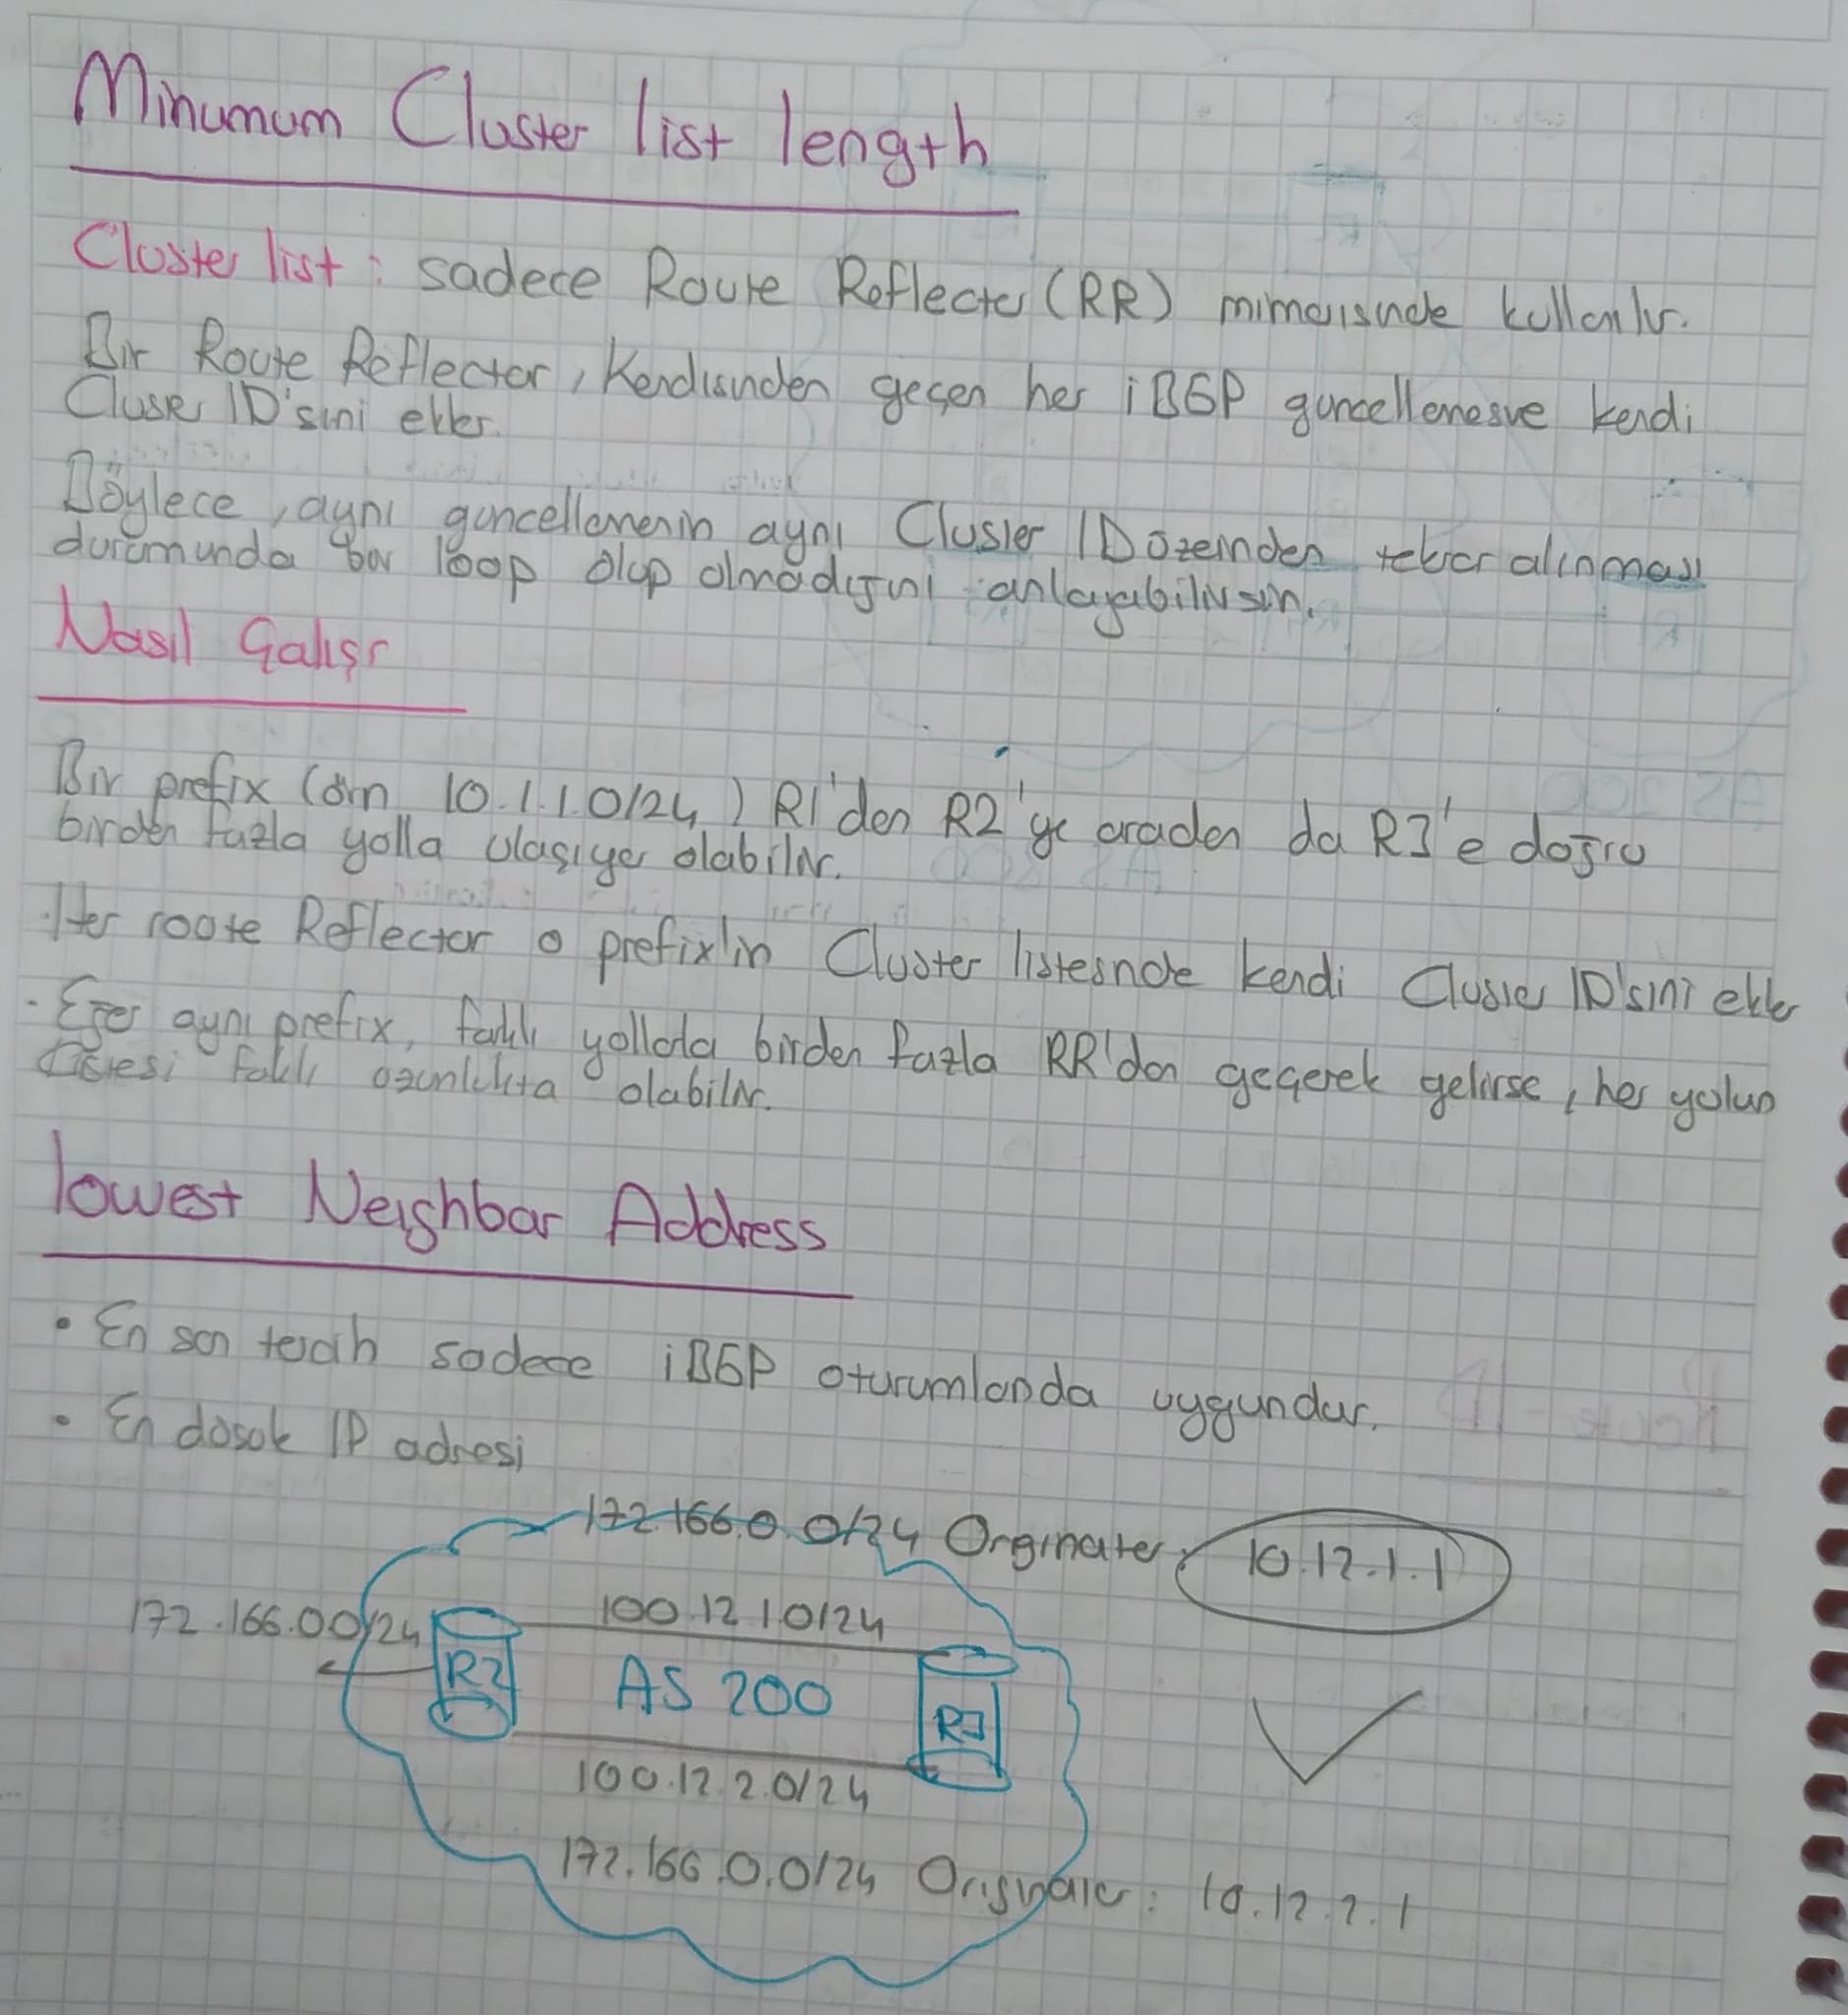 Minumum Cluster list length
Cluster list : sadece Route Reflector (RR) mimarisinde kullanılır.
Bir Route Reflector, Kendisinden geçen her iBGP güncellemesine kendi
Cluser ID'sini ekler.
Böylece, aynı güncellemenin aynı Cluster ID üzerinden tekrar alınması
durumunda bir loop olup olmadığını anlayabilirsin.
Nasıl Çalışır
Bir prefix (örn 10.1.1.0/24) R1'den R2'ye oradan da R3'e doğru
birden fazla yolla ulaşıyor olabilir.
. Her route Reflector o prefix'in Cluster listesinde kendi Cluster ID'sini ekler
. Eğer aynı prefix, farklı yollarla birden fazla RR'dan geçerek gelirse, her yolun
listesi farklı uzunlukta olabilir.
lowest Neighbar Address
• En son tercih sadece iBGP oturumlarında uygundur.
• En düşük IP adresi
172.166.0.0/24 Orginater: 10.12.1.1
172.166.0.0/24
100.12.1.0/24
R2
AS 200
R3
100.12.2.0/24
172.166.0.0/24 Originater: 10.12.2.1